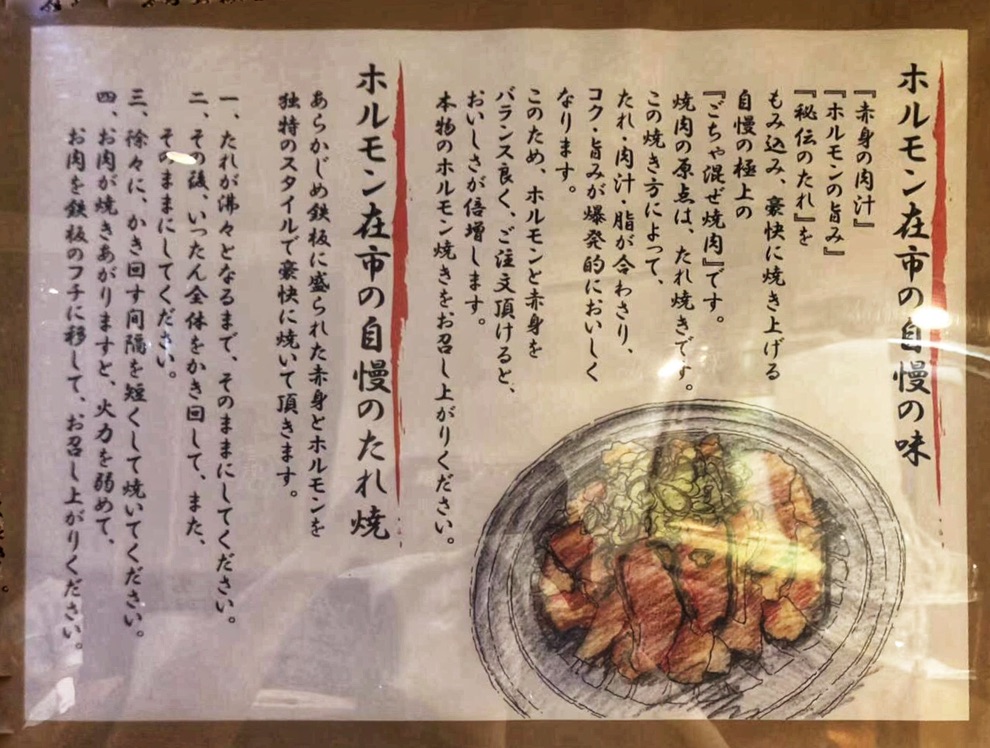 ホルモン在市の自慢の味
『赤身の肉汁』
『ホルモンの旨み』
『秘伝のたれ』を
もみ込み、豪快に焼き上げる
自慢の極上の
『ごちゃ混ぜ焼肉』です。
焼肉の原点は、たれ焼きです。
この焼き方によって、
たれ・肉汁・脂が合わさり、
コク・旨みが爆発的においしく
なります。
このため、ホルモンと赤身を
バランス良く、ご注文頂けると、
おいしさが倍増します。
本物のホルモン焼きをお召し上がりください。
ホルモン在市の自慢のたれ焼
あらかじめ鉄板に盛られた赤身とホルモンを
独特のスタイルで豪快に焼いて頂きます。
一、たれが沸々となるまで、そのままにしてください。
二、その後、いったん全体をかき回して、また、
そのままにしてください。
三、徐々に、かき回す間隔を短くして焼いてください。
四、お肉が焼きあがりますと、火力を弱めて、
お肉を鉄板のフチに移して、お召し上がりください。